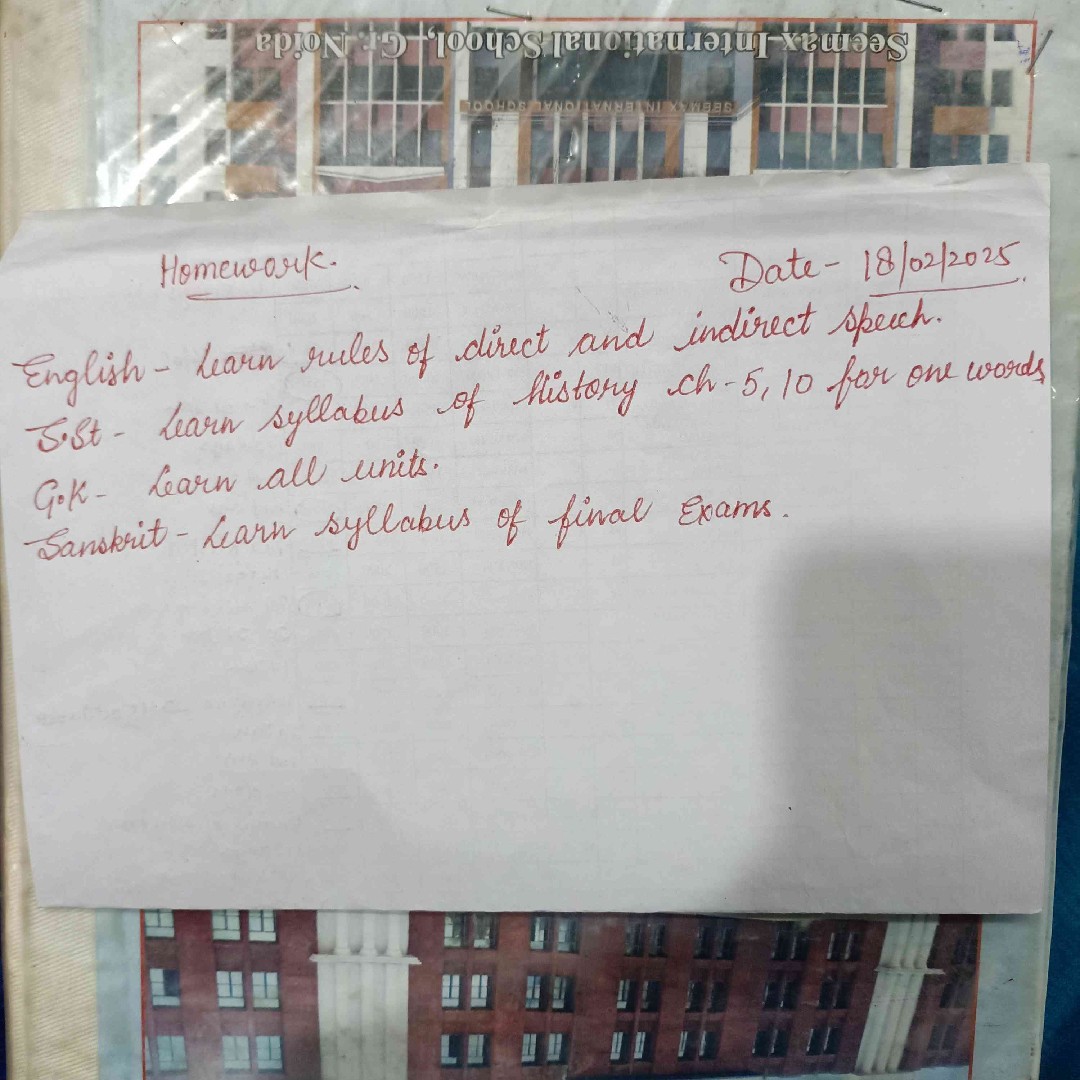 Seemax International School, Gr. Noida
SEEMAX INTERNATIONAL SCHOOL
Homework. Date - 18/02/2025
English - Learn rules of direct and indirect speech.
S.St - Learn syllabus of history ch - 5, 10 for one words
G.K - Learn all units.
Sanskrit - Learn syllabus of final Exams.